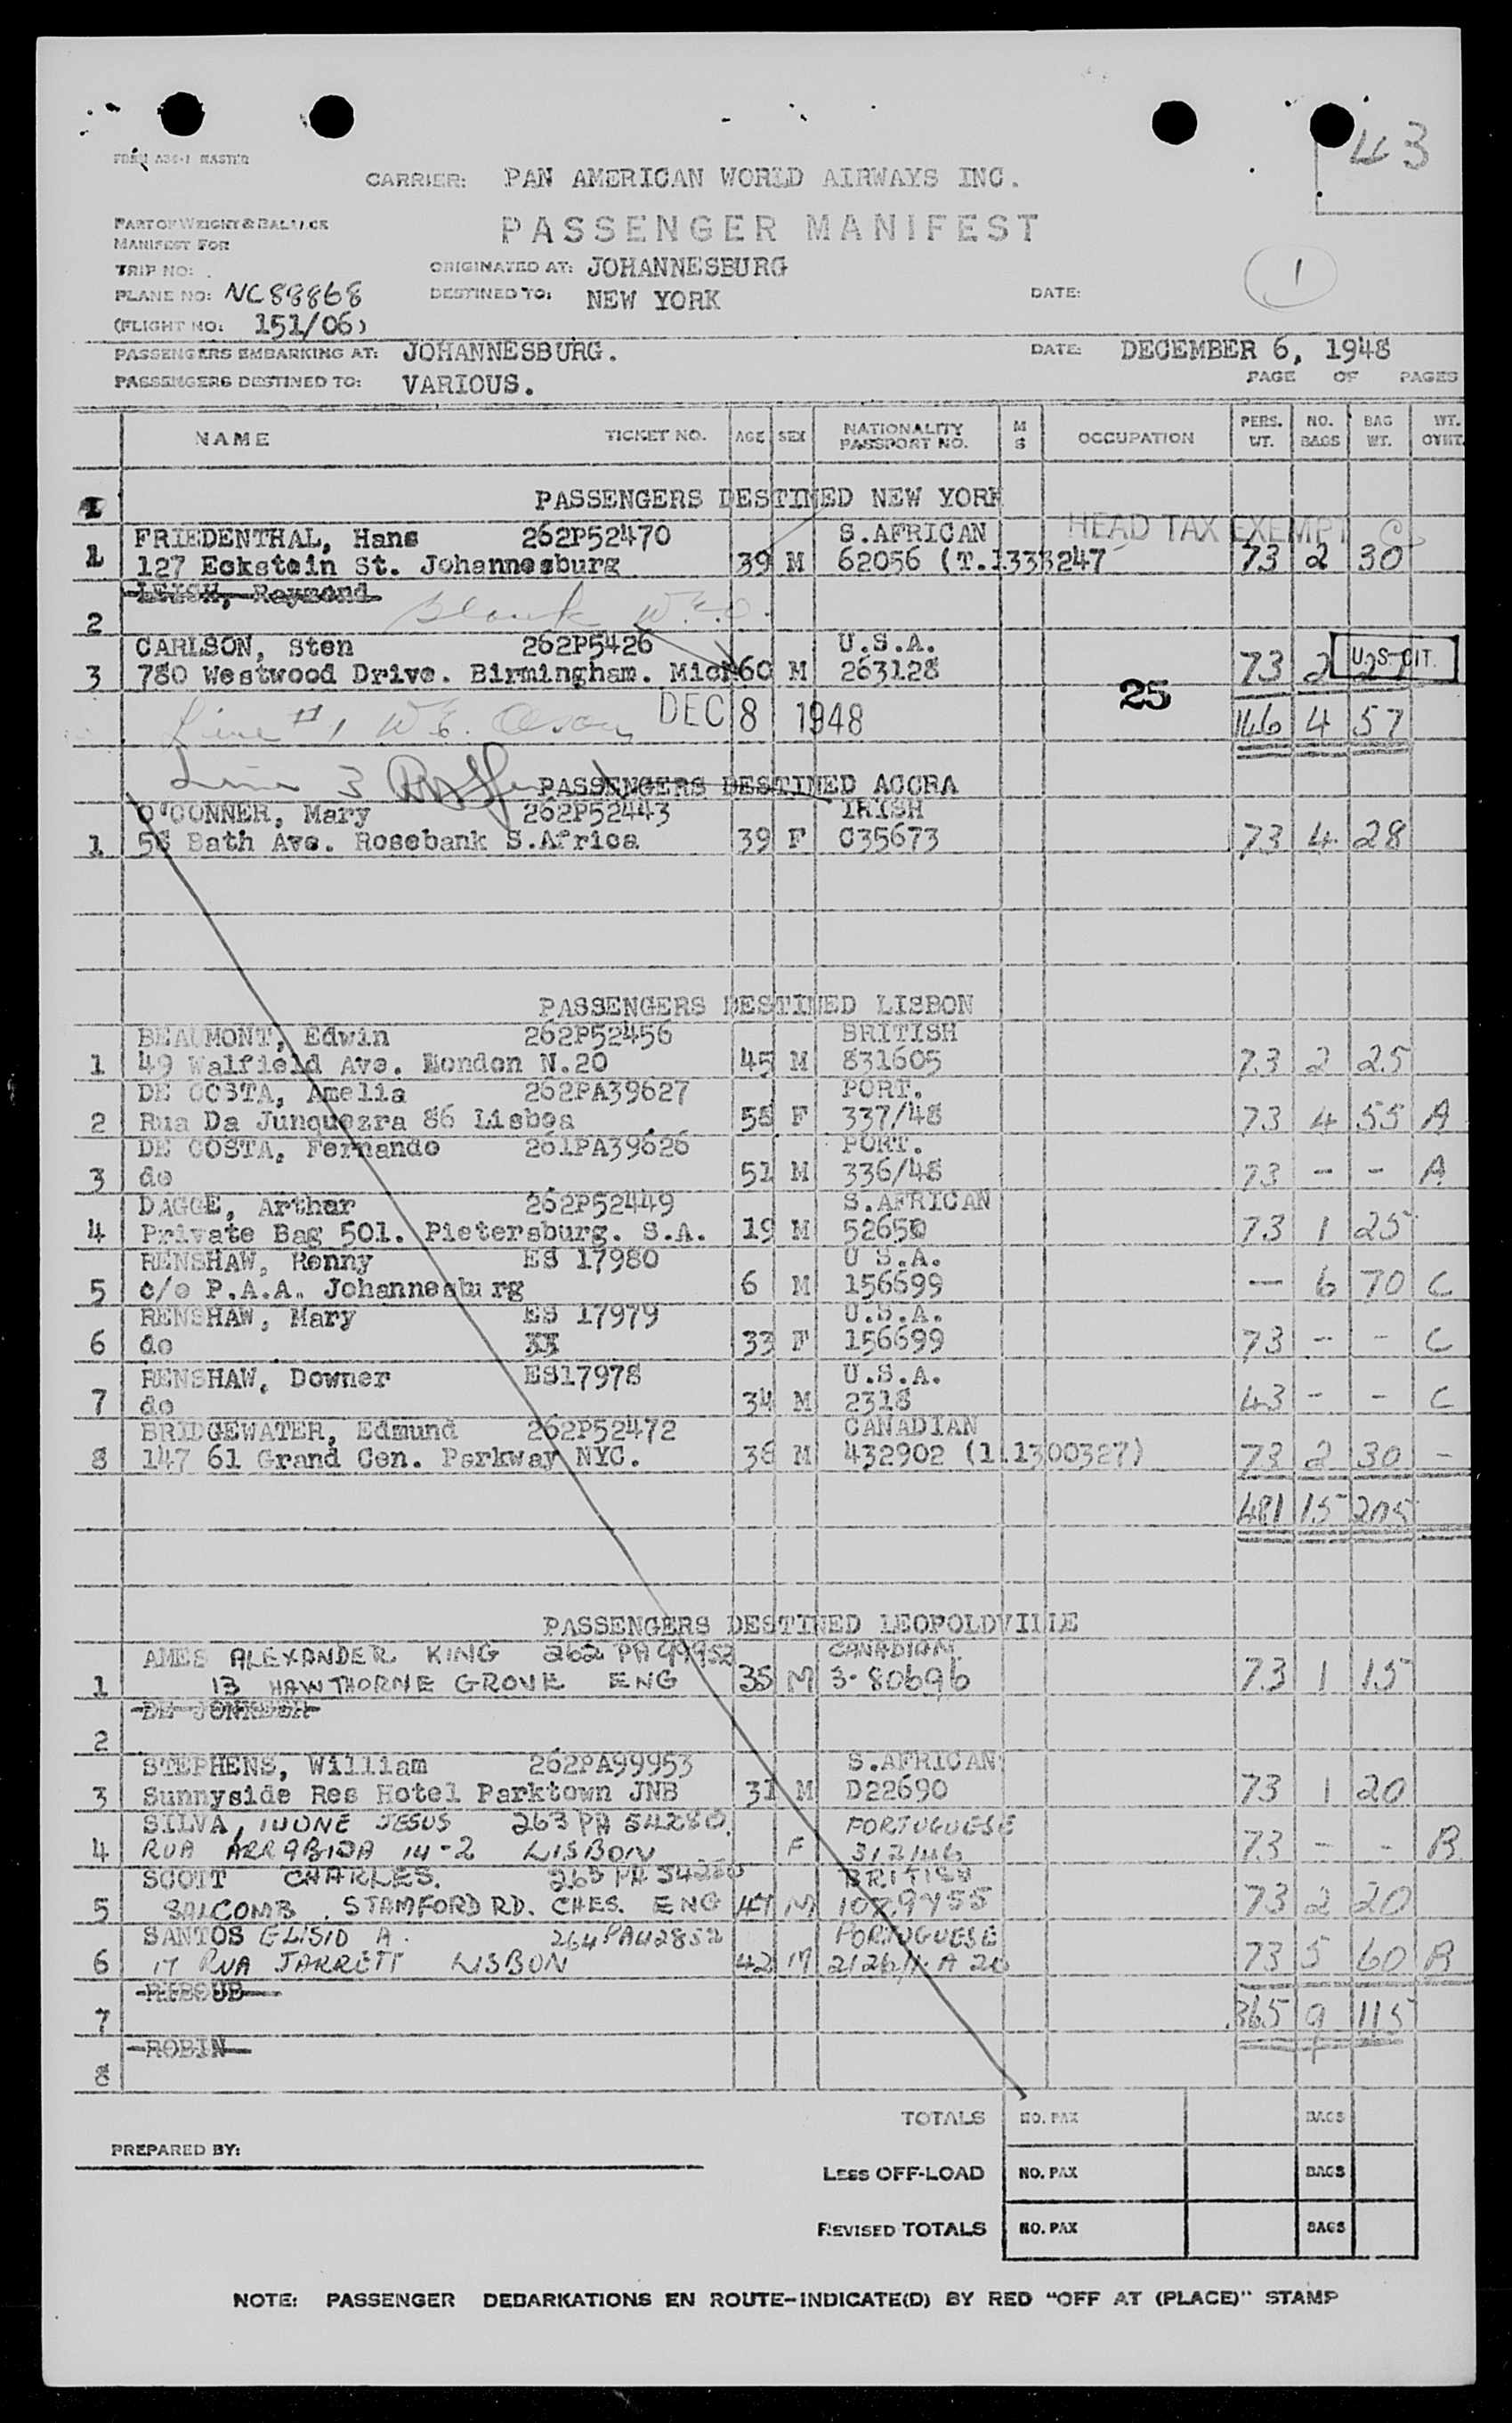 43
FORM ASC-1 MASTER
CARRIER: PAN AMERICAN WORLD AIRWAYS INC.
PART OF WEIGHT & BALANCE
PASSENGER MANIFEST
MANIFEST FOR
TRIP NO:
ORIGINATED AT: JOHANNESBURG
1
PLANE NO: NC88868
DESTINED TO: NEW YORK
DATE:
(FLIGHT NO: 151/06)
PASSENGERS EMBARKING AT: JOHANNESBURG.
DATE: DECEMBER 6, 1948
PASSENGERS DESTINED TO: VARIOUS.
PAGE OF PAGES
NAME TICKET NO. AGE SEX NATIONALITY PASSPORT NO. M S OCCUPATION PERS. WT. NO. BAGS BAG WT. WT. OVHT.
PASSENGERS DESTINED NEW YORK
FRIEDENTHAL, Hans 262P52470 S.AFRICAN HEAD TAX EXEMPT
1 127 Eckstein St. Johannesburg 39 M 62056 (T.1333247 73 2 30
Raymond
2 Blank W.E.O.
CARLSON, Sten 262P5426 U.S.A.
3 780 Westwood Drive. Birmingham. Mich 60 M 263128 73 2 27 U.S. CIT.
25
Line #1 W E. Olson DEC 8 1948 146 4 57
Line 3
PASSENGERS DESTINED ACCRA
O'CONNER, Mary 262P52443 IRISH
1 56 Bath Ave. Rosebank S.Africa 39 F C35673 73 4 28
PASSENGERS DESTINED LISBON
BEAUMONT, Edwin 262P52456 BRITISH
1 49 Walfield Ave. London N.20 45 M 831605 73 2 25
DE COSTA, Amelia 262PA39627 PORT.
2 Rua Da Junquezra 86 Lisboa 58 F 337/48 73 4 55 A
DE COSTA, Fernando 261PA39626 PORT.
3 do 51 M 336/48 73 - - A
DAGGE, Arthur 262P52449 S.AFRICAN
4 Private Bag 501. Pietersburg. S.A. 19 M 52650 73 1 25
RENSHAW, Renny ES 17980 U S.A.
5 c/o P.A.A. Johannesburg 6 M 156699 — 6 70 C
RENSHAW, Mary ES 17979 U.S.A.
6 do XX 33 F 156699 73 - - C
RENSHAW, Downer ES17978 U.S.A.
7 do 34 M 2318 43 - - C
BRIDGEWATER, Edmund 262P52472 CANADIAN
8 147 61 Grand Cen. Parkway NYC. 38 M 432902 (1.1300327) 73 2 30 -
481 15 205
PASSENGERS DESTINED LEOPOLDVILLE
AMES ALEXANDER KING 262 PA 99952 CANADIAN
1 13 HAWTHORNE GROVE ENG 35 M 3-80696 73 1 15
DE JONKEER
2
STEPHENS, William 262PA99953 S.AFRICAN
3 Sunnyside Res Hotel Parktown JNB 31 M D22690 73 1 20
SILVA, IUONE JESUS 263 PA 54280 PORTUGUESE
4 RUA ARRABIDA 14-2 LISBON F 312146 73 - - B
SCOTT CHARLES. 263 PA BRITISH
5 BALCOMB. STAMFORD RD. CHES. ENG 47 M 73 2 20
SANTOS ELISIO A. 264PA42852 PORTUGUESE
6 17 RUA JARRETT LISBON 42 M A 20 73 5 60 B
7 365 9 115
ROBIN
8
TOTALS NO. PAX BAGS
PREPARED BY:
LESS OFF-LOAD NO. PAX BAGS
REVISED TOTALS NO. PAX BAGS
NOTE: PASSENGER DEBARKATIONS EN ROUTE-INDICATE(D) BY RED "OFF AT (PLACE)" STAMP